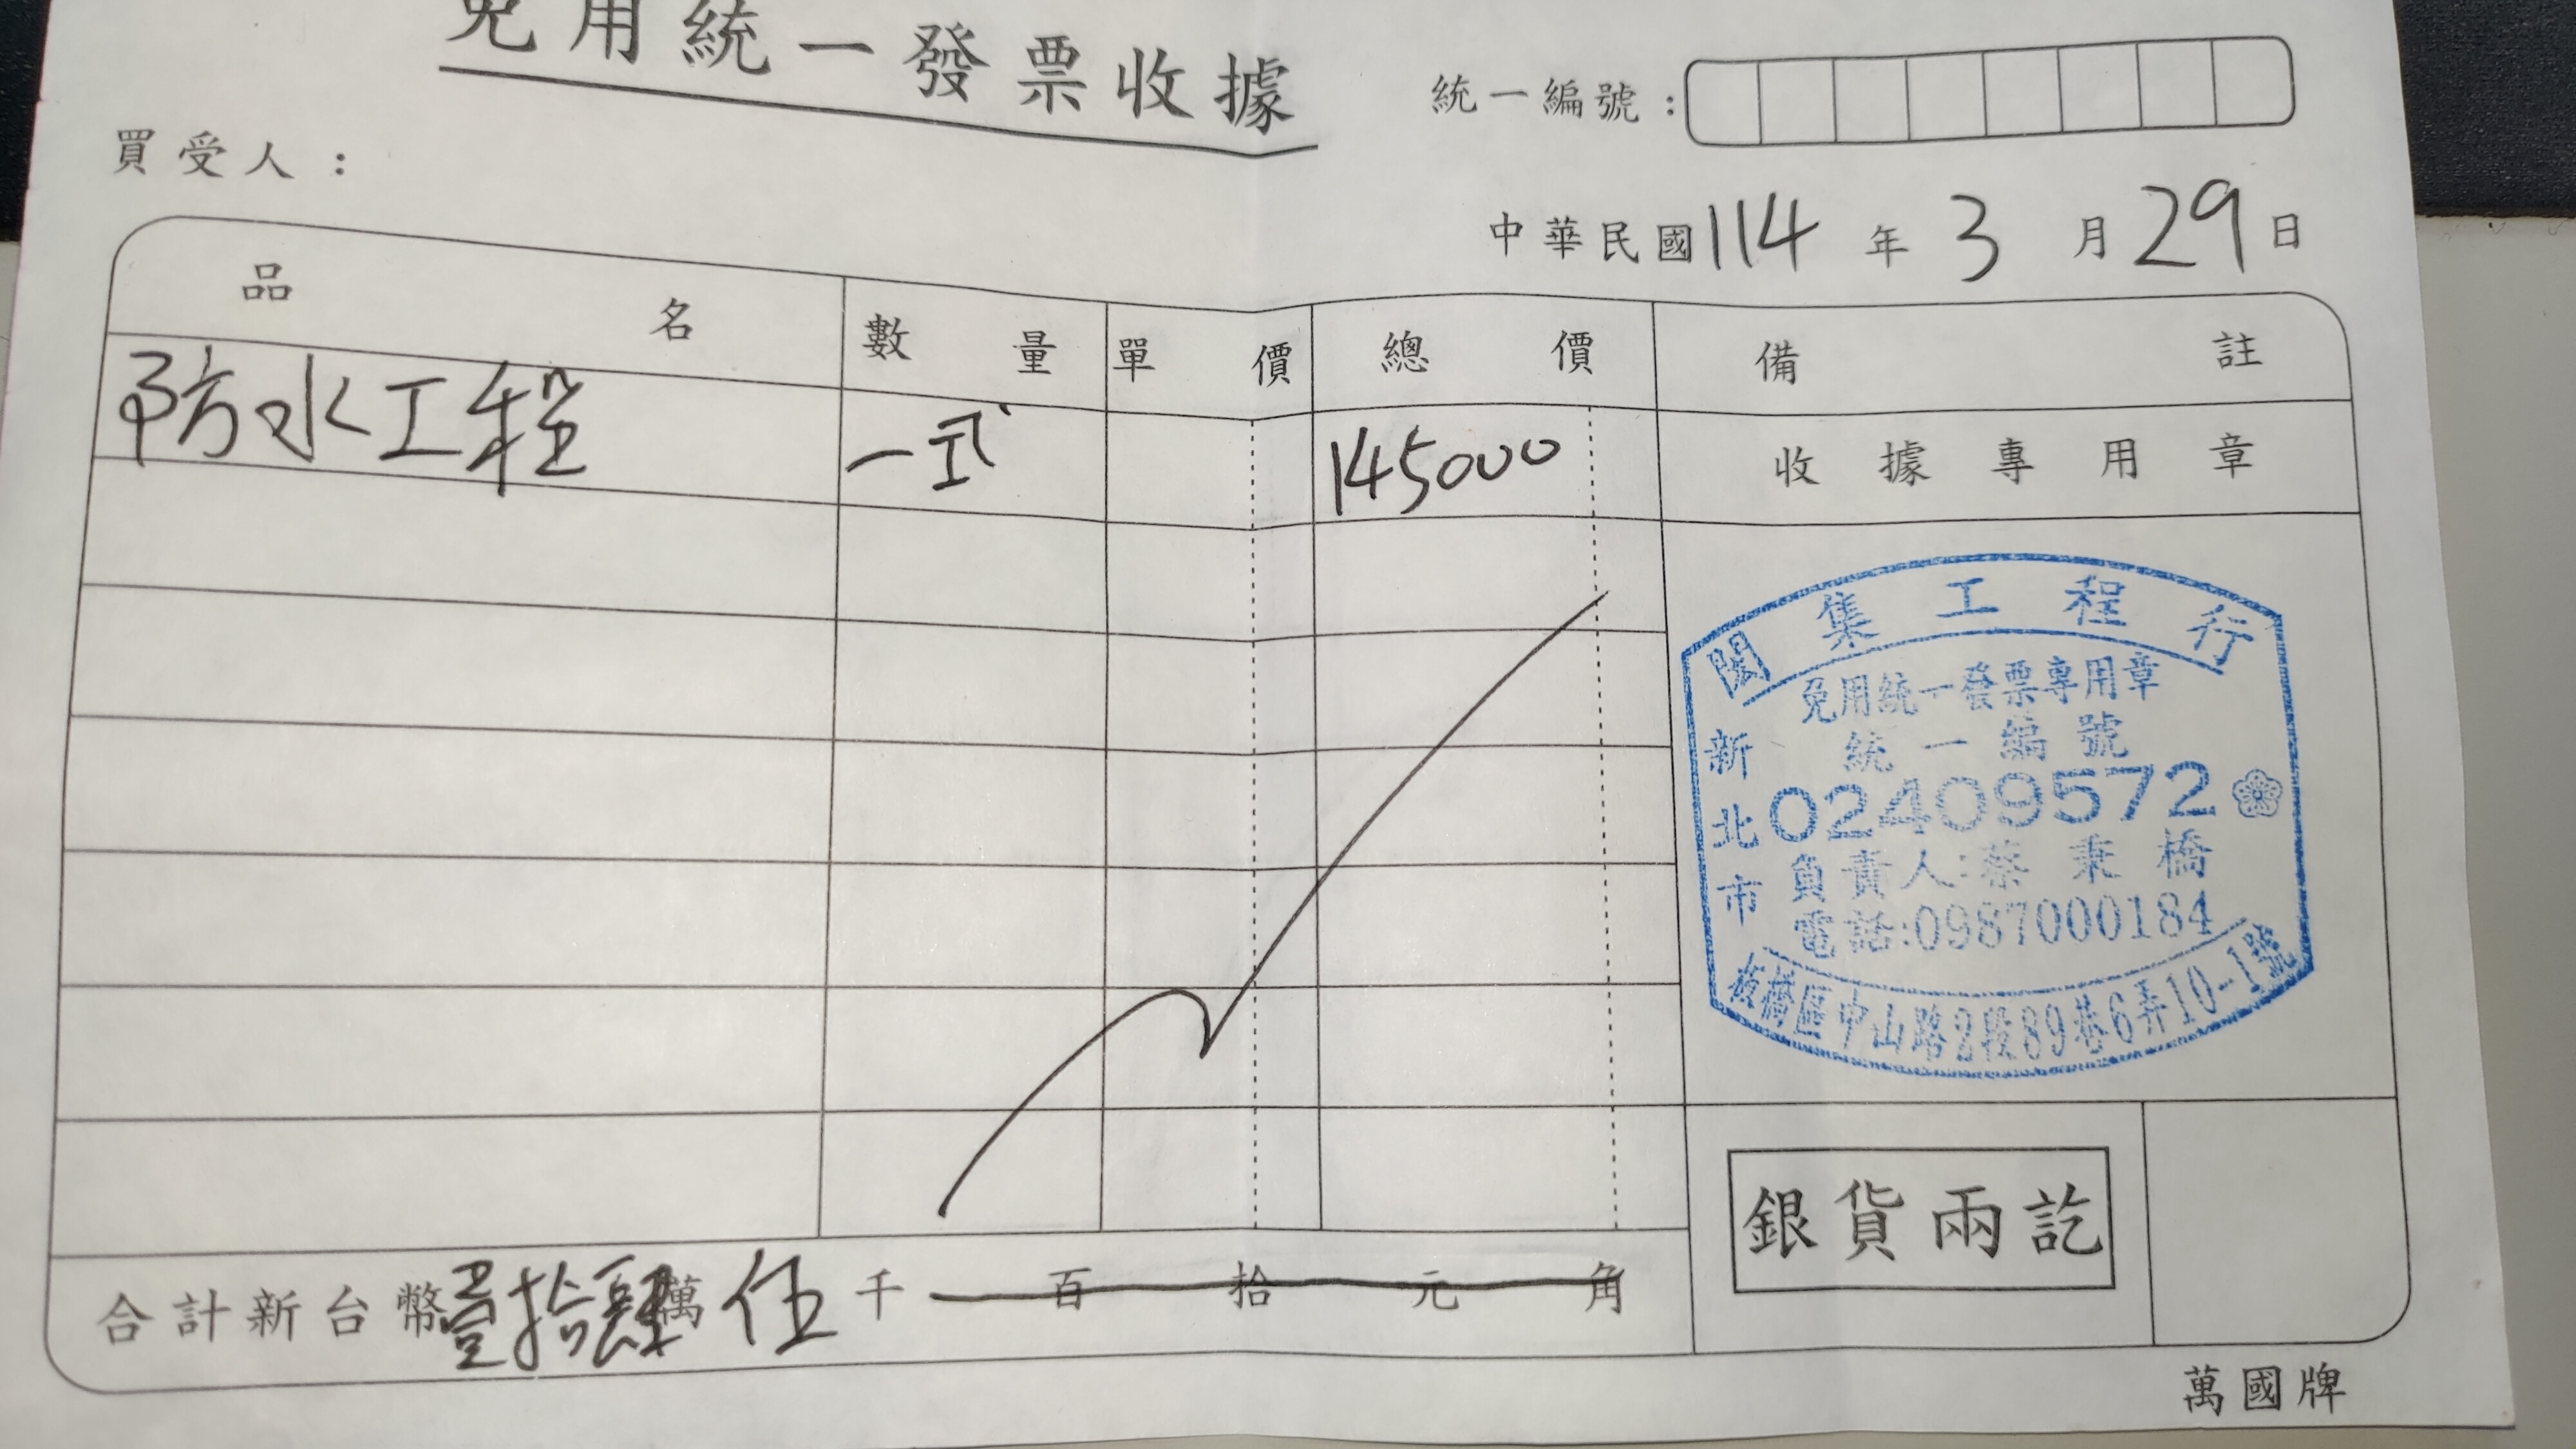 免用統一發票收據
統一編號：
買受人：
中華民國114年3月29日
品名 數量 單價 總價 備註
防水工程 一式 145000
收據專用章
閎集工程行
免用統一發票專用章
統一編號
02409572
負責人:蔡秉橋
電話:0987000184
新北市
板橋區中山路2段89巷6弄10-1號
銀貨兩訖
合計新台幣壹拾肆萬伍千百拾元角
萬國牌